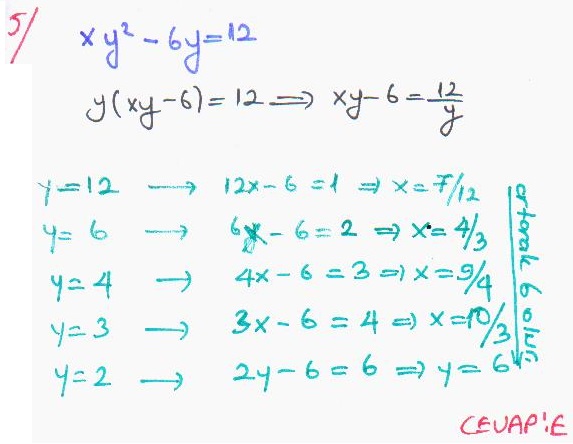 5/
xy² - 6y = 12
y(xy-6) = 12 ⟹ xy-6 = 12/y
y=12 → 12x - 6 = 1 ⇒ x = 7/12
y=6 → 6x - 6 = 2 ⇒ x = 4/3
y=4 → 4x - 6 = 3 ⇒ x = 9/4
y=3 → 3x - 6 = 4 ⇒ x = 10/3
y=2 → 2y - 6 = 6 ⇒ y = 6
artarak 6 olur
CEVAP:E